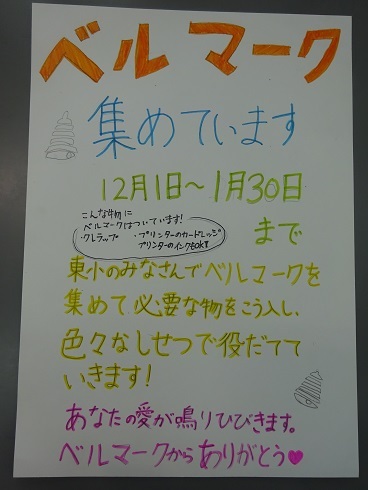 ベルマーク
集めています
12月1日〜1月30日
まで
こんな物に
ベルマークはついています!
・クレラップ ・プリンターのカートレッジ
プリンターのインクもOK!!
東小のみなさんでベルマークを
集めて、必要な物をこう入し、
色々なしせつで役だてて
いきます!
あなたの愛が鳴りひびきます。
ベルマークからありがとう♥